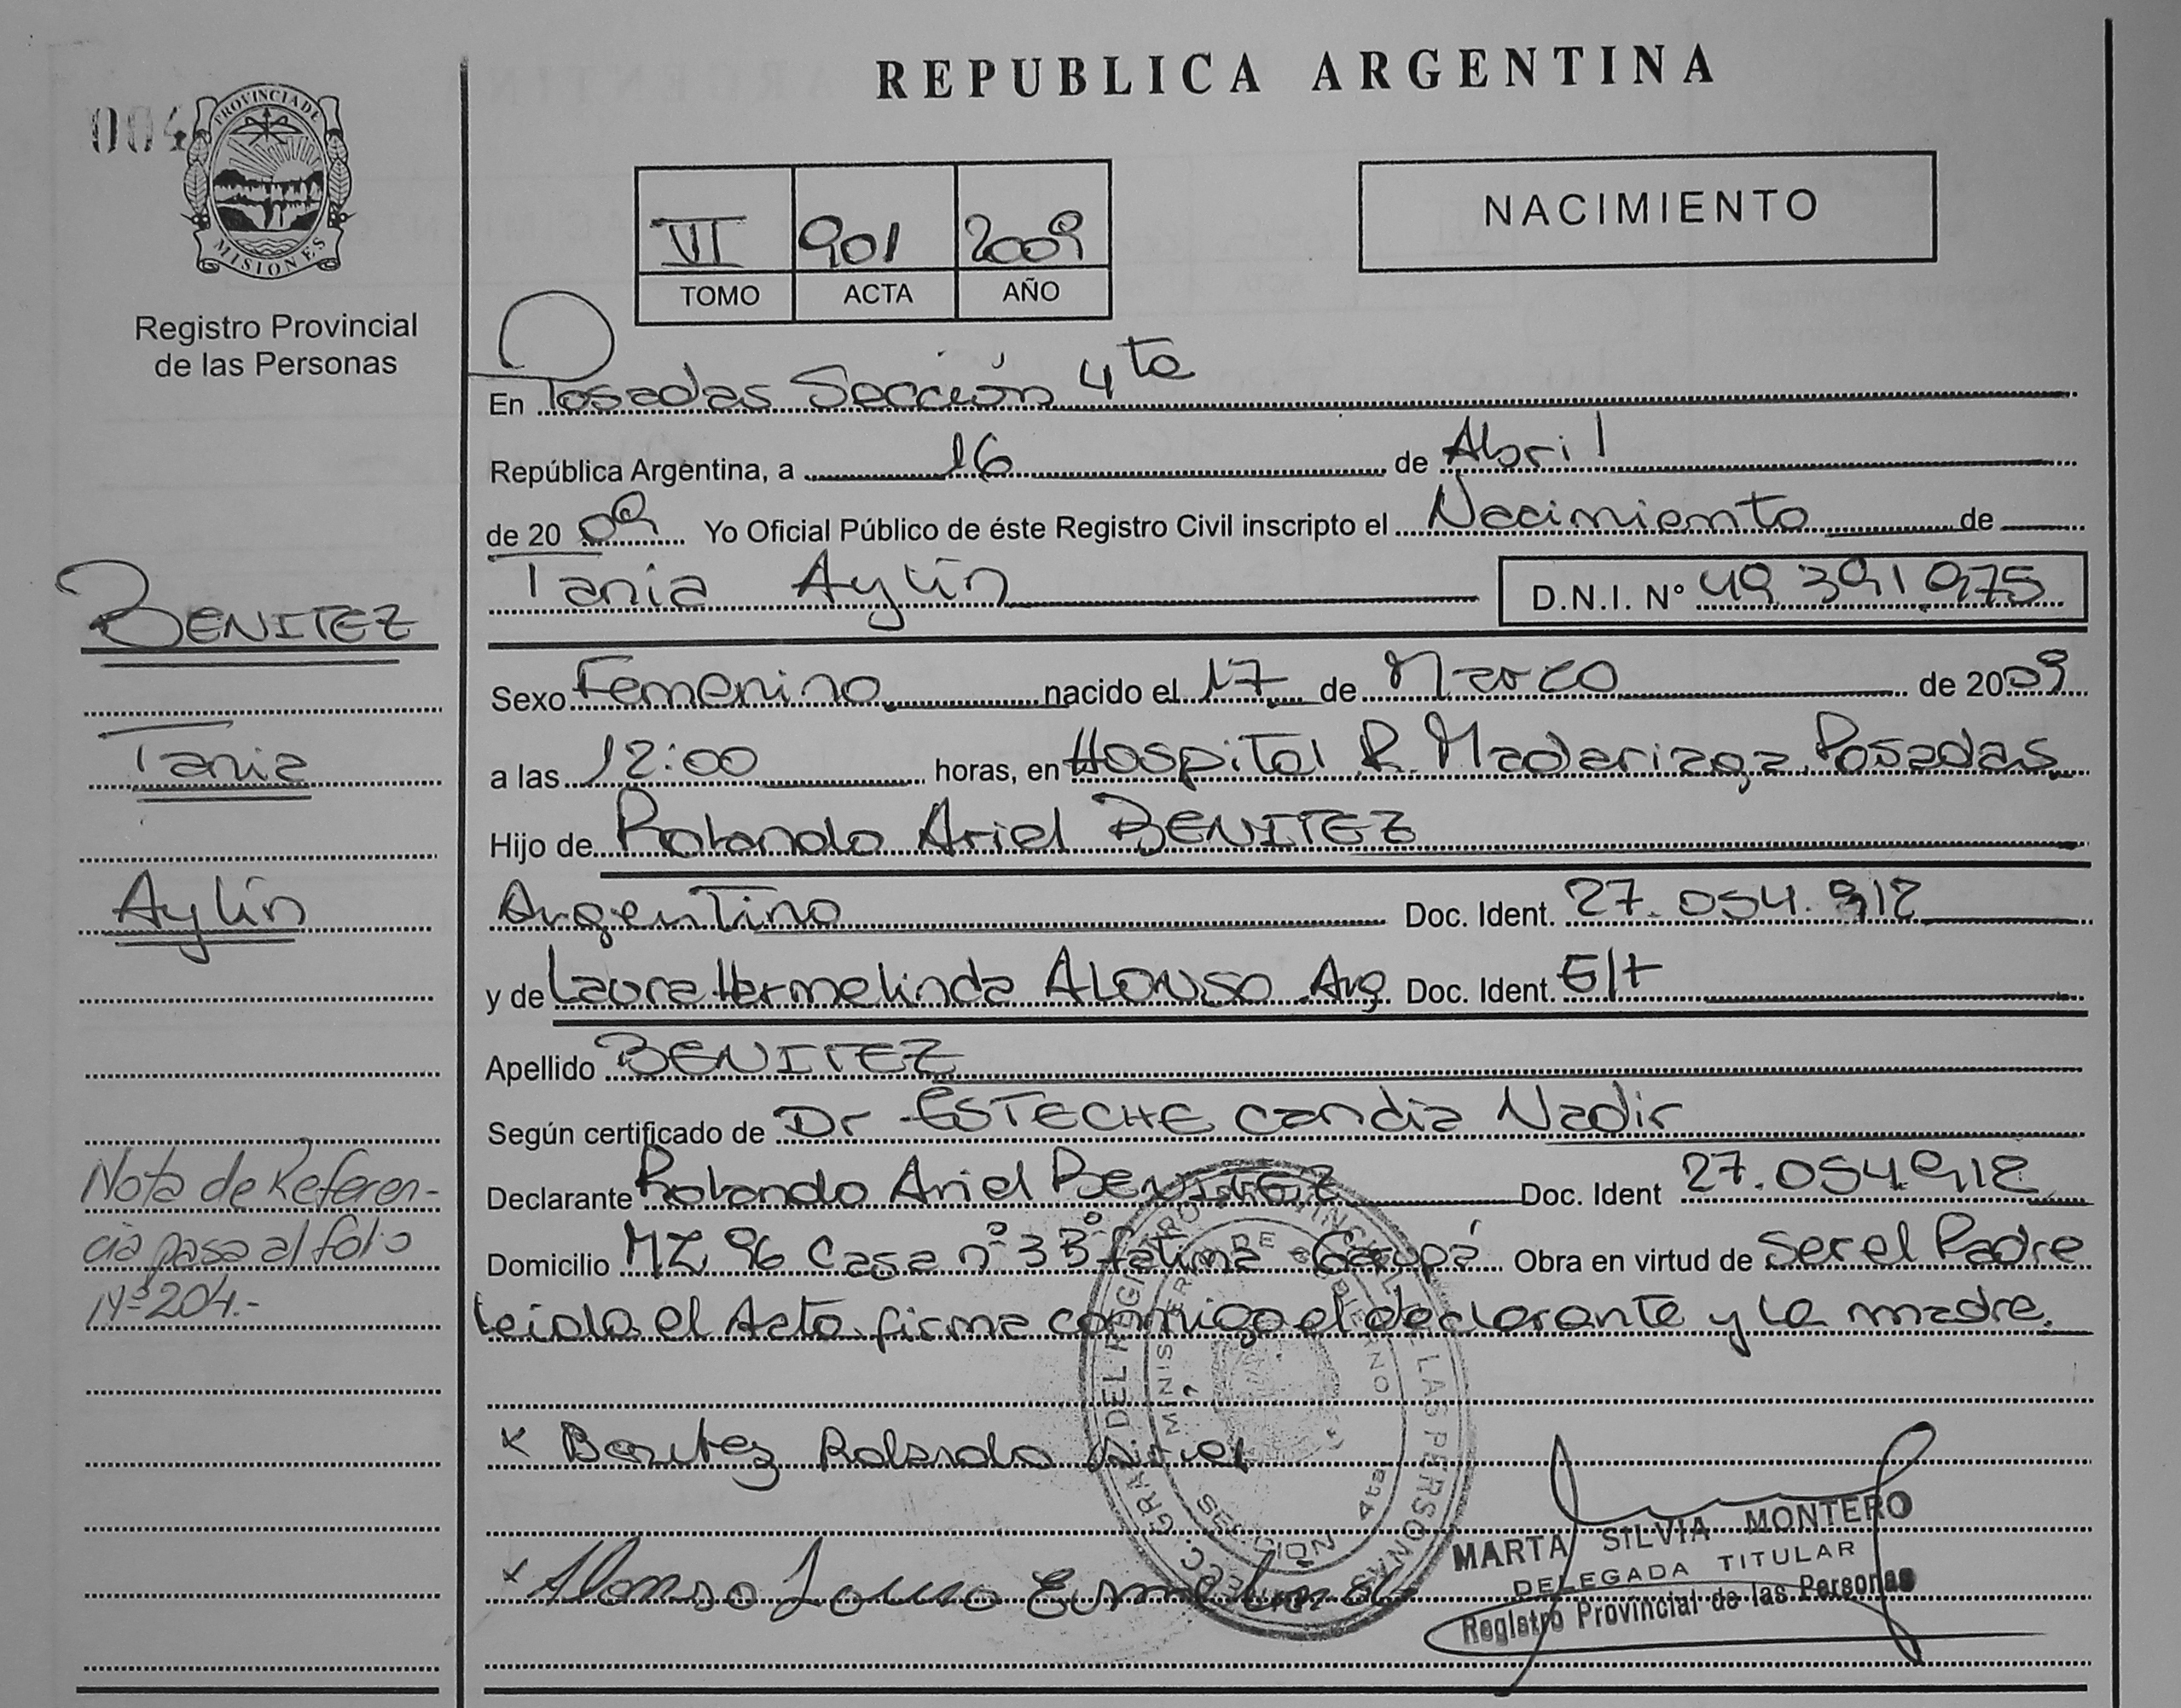 REPUBLICA ARGENTINA
004
PROVINCIA DE
MISIONES
Registro Provincial
de las Personas
VI 901 2009
TOMO ACTA AÑO
NACIMIENTO
En Posadas Sección 4ta
República Argentina, a 16 de Abril
de 2009 Yo Oficial Público de éste Registro Civil inscripto el Nacimiento de
Tania Aylin D.N.I. Nº 49.391.975
BENITEZ
Tania
Aylin
Sexo Femenino nacido el 17 de Marzo de 2009
a las 12:00 horas, en Hospital R. Madariaga Posadas
Hijo de Rolando Ariel BENITEZ
Argentino Doc. Ident. 27.054.912
y de Laura Hermelinda ALONSO Arg Doc. Ident. E/t
Apellido BENITEZ
Según certificado de Dr ESTECHE Candia Nadir
Declarante Rolando Ariel BENITEZ Doc. Ident 27.054912
Domicilio MZ 96 Casa nº 3 Bº Fatima - Garupá Obra en virtud de Ser el Padre
Leida el Acta firma conmigo el declarante y la madre.
Nota de Referen-
cia pasa al folio
Nº 204.-
x Benitez Rolando Ariel
x Alonso Laura Ermelinda
MARTA SILVIA MONTERO
DELEGADA TITULAR
Registro Provincial de las Personas
DEL REGISTRO PROVINCIAL DE LAS PERSONAS
MINISTERIO DE GOBIERNO
SECCION 4ta